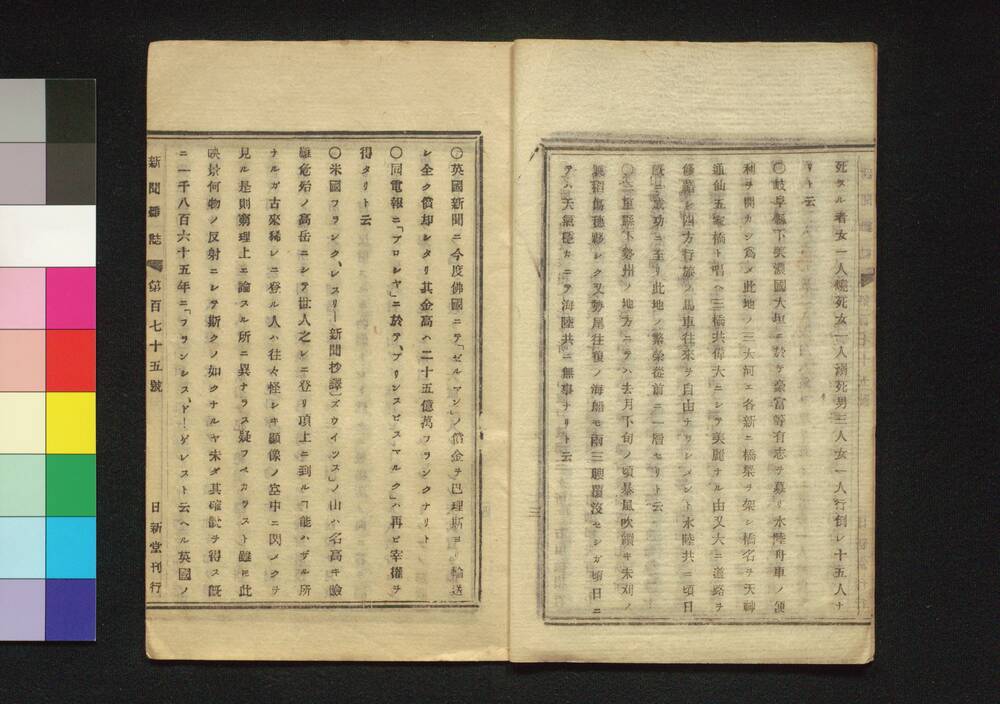 死スル者女一人燒死女一人溺死男三人女一人行倒レ十五人ナ
リト云
〇岐阜縣下美濃國大垣ニ於テ豪富等有志ヲ募リ水陸舟車ノ便
利ヲ開カン爲メ此地ノ三大河エ各新ニ橋梁ヲ架シ橋名ヲ天神
通仙五家橋ト唱ヘ三橋共偉大ニシテ美麗ナル由又大ニ道路ヲ
修繕シ四方行旅ノ馬車往來ヲ自由ナリシメント水陸共ニ頃日
既ニ成功ニ至リ此地ノ繁榮從前ニ一層セリト云
〇三重縣下勢州ノ地方ニテハ去月下旬ノ頃暴風吹續キ未刈ノ
無稻傷穗夥シク又勢尾往復ノ海船モ兩三艘覆沒セシガ頃日ニ
テハ天氣穩カニテ海陸共ニ無事ナリト云
〇英國新聞ニ今度佛國ニテ「ゼルマン」ノ償金ヲ巴理斯ヨリ輸送
シ全ク償却シタリ其金高ハ二十五億萬フランクナリト
〇同電報ニ「プロシヤ」ニ於テ「プリンスビスマルク」ハ再ビ宰權ヲ
得タリト云
〇米國フランク、レスリー新聞抄譯「ズウイツス」ノ山ハ名高キ嶮
雖危殆ノ高岳ニシテ世人之レニ登リ項上ニ到ルヿ能ハザル所
ナルガ古來稀レニ登ル人ハ往々怪シキ顯像ノ空中ニ閃メクヲ
見ル是則窮理上ニ論スル所ニ異ナラス疑フベカラスト雖𪜈此
映景何物ノ反射ニシテ斯クノ如クナルヤ未ダ其確說ヲ得ス既
ニ一千八百六十五年ニ「フランシス、ド―ゲレスト云ヘル英國ノ
新聞雜誌 第百七十五號 日新堂刊行